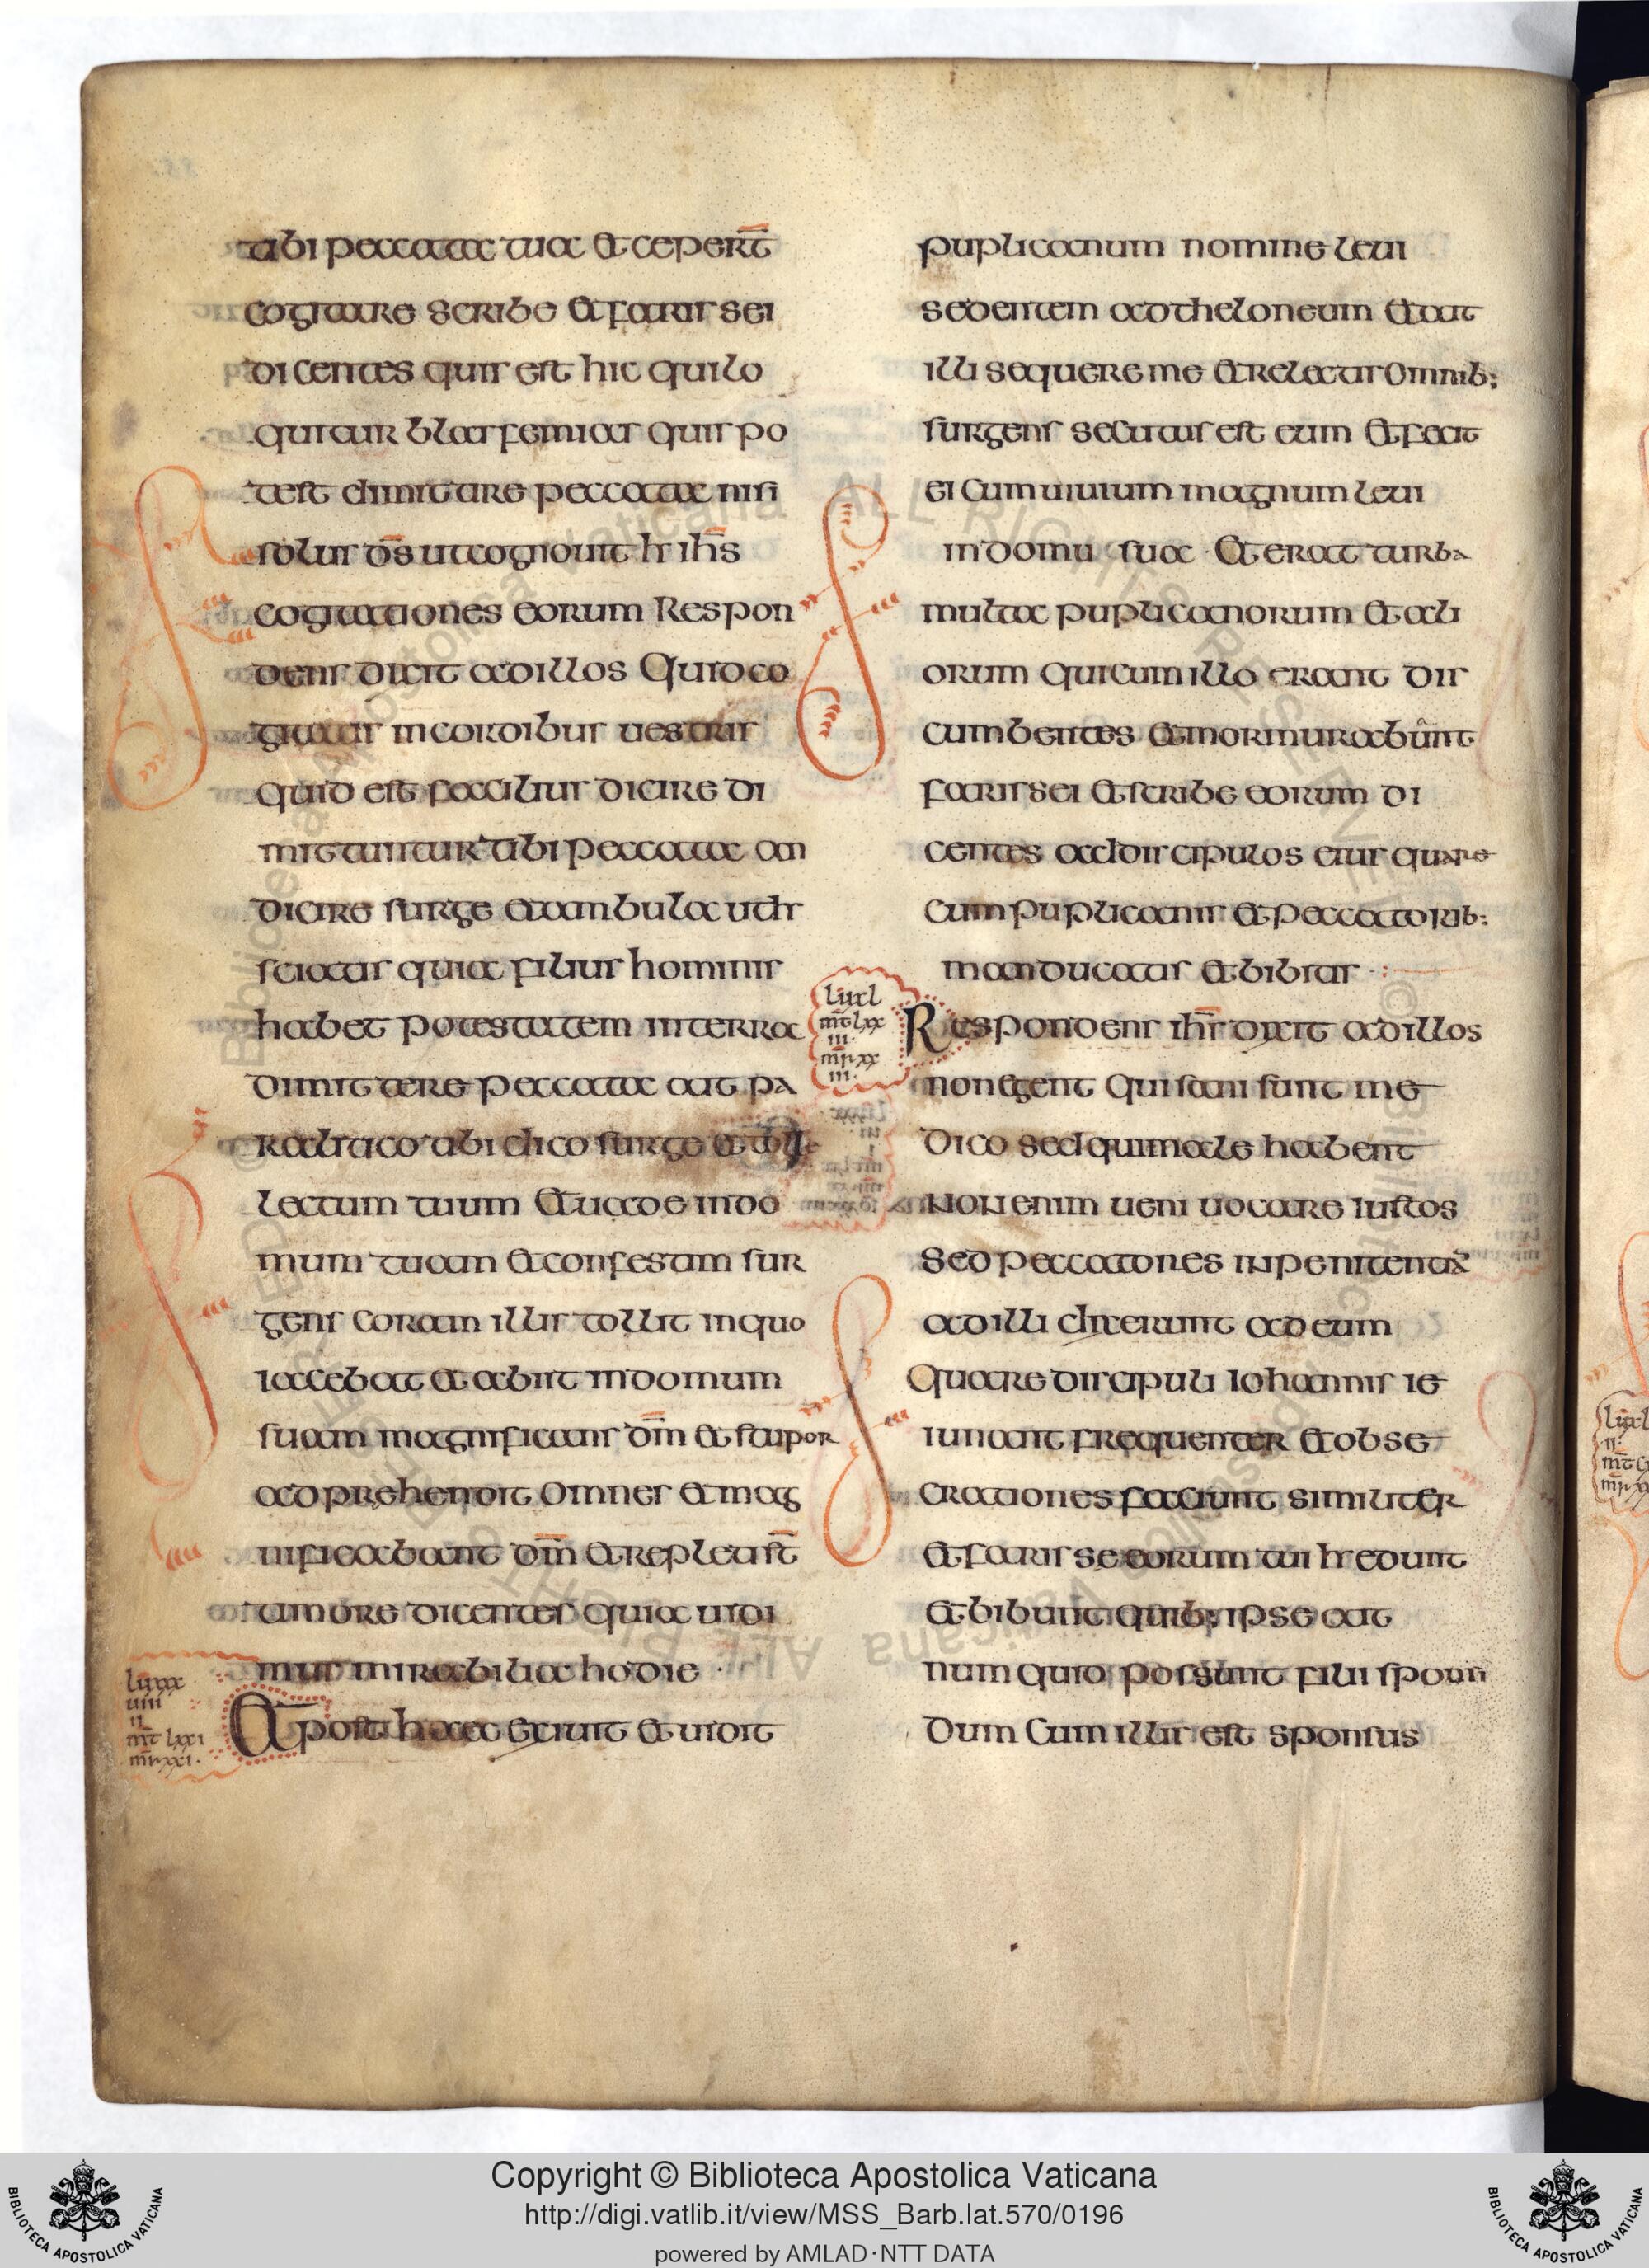 tibi peccata tua et ceper̄t
cogitare scribe et farissei
dicentes quis est hic qui lo
quitur blasfemias quis po
test dimittere peccata nisi
solus d̄s ut cognouit h ih̄s
cogitationes eorum Respon
dens dixit ad illos Quid co
gitatis in cordibus uestris
quid est facilius dicire di
mittuntur tibi peccata an
dicire surge et ambula ut h
sciatis quia filius hominis
habet potestatem in terra
dimittere peccata ait pa
ralitico tibi dico surge et tolle
lectum tuum et uade in do
mum tuam et confestim sur
gens coram illis tollit in quo
iacebat et abiit in domum
suam magnificans dm̄ et stupor
adprehendit omnes et mag
nificabant dm̄ et repleti st̄
timore dicentes quia uidi
mus mirabilia hodie ·
lūxxx
uiii
ii
mt̄ lxxi
mr̄ xxi.
Et post haec exiuit et uidit
puplicanum nomine leui
sedentem ad theloneum et ait
illi sequere me et relectis omnib;
surgens secutus est eum et fecit
ei cumuiuium magnum leui
in domu sua · Et erat turba
multa puplicanorum et ali
orum qui cum illo erant dis
cumbentes et mormurabunt
farissei et scribe eorum di
centes ad discipulos eius quare
cum puplicanis et peccatorib;
manducatis et bibitis ·:
lūxl
mt̄ lxx
iii
mr̄ xx
iii·
Respondens ih̄s dixit ad illos
non egent qui sani sunt me
dico sed qui male habent
Non enim ueni uocare iustos
sed peccatores in penitentiā
ad illi dixerunt ad eum
Quare discipuli iohannis ie
iunant frequenter et obse
crationes faciunt similiter
et farisse eorum tui h edunt
et bibunt quib; ipse ait
num quid possunt filii sponsi
dum cum illis est sponsus
Copyright © Biblioteca Apostolica Vaticana
http://digi.vatlib.it/view/MSS_Barb.lat.570/0196
powered by AMLAD·NTT DATA
BIBLIOTECA APOSTOLICA VATICANA
BIBLIOTECA APOSTOLICA VATICANA